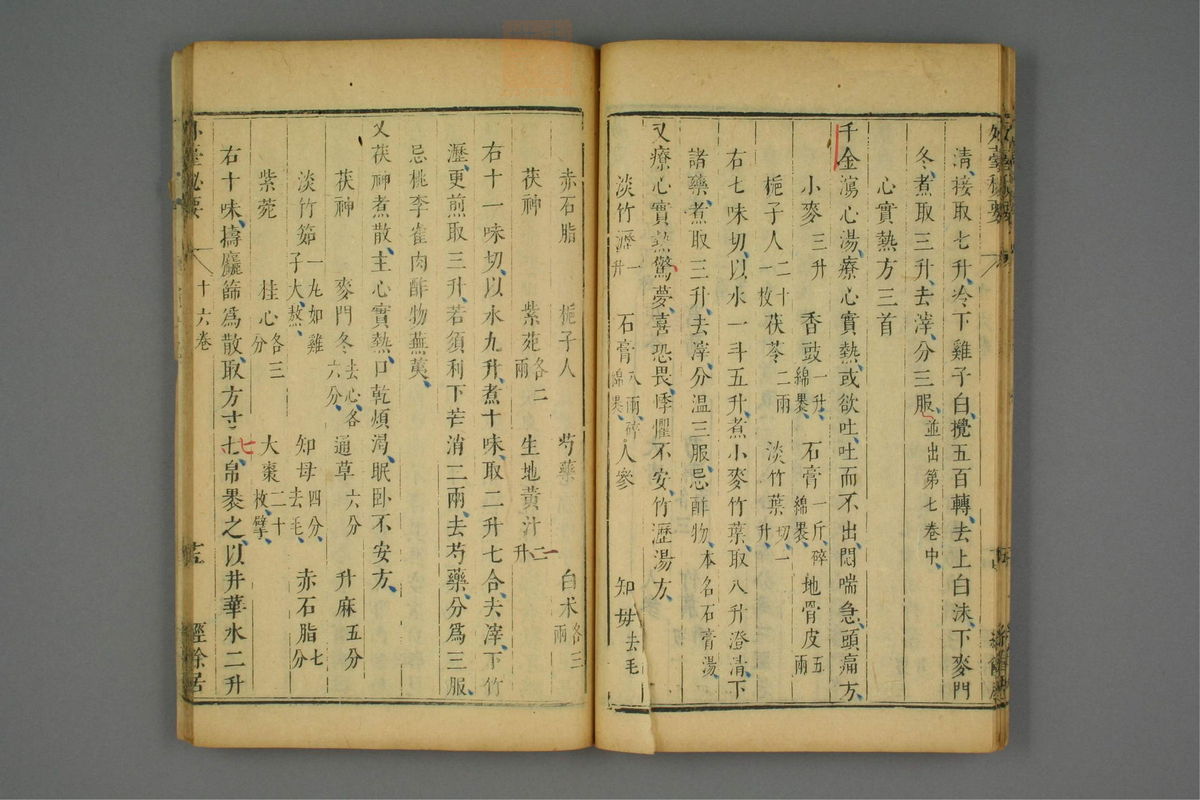 外臺秘要
清接取七升冷下雞子白攪五百轉去上白沫下麥門
冬煮取三升去滓分三服並出第七卷中
心實熱方三首
千金瀉心湯療心實熱或欲吐吐而不出悶喘急頭痛方
小麥三升 香豉一升綿褁 石膏一斤碎綿褁 地骨皮五兩
梔子人二十一枚 茯苓二兩 淡竹葉切一升
右七味切以水一斗五升煮小麥竹葉取八升澄清下
諸藥煮取三升去滓分温三服忌酢物本名石膏湯
又療心實熱驚夢喜恐畏悸懼不安竹瀝湯方
淡竹瀝一升 石膏八兩碎綿褁 人參 知母去毛
赤石脂 梔子人 芍藥 白术各三兩
茯神 紫菀各二兩 生地黃汁二升
右十一味切以水九升煮十味取二升七合去滓下竹
瀝更煎取三升若須利下芒消二兩去芍藥分爲三服
忌桃李雀肉酢物蕪荑
又茯神煮散主心實熱口乾煩渴眠卧不安方
茯神 麥門冬去心各六分 通草六分 升麻五分
淡竹筎一丸如雞子大熬 知母四分去毛 赤石脂七分
紫菀 桂心各三分 大棗二十枚擘
右十味擣麤篩爲散取方寸七帛褁之以井華水二升
外臺秘要 十六卷 經餘居